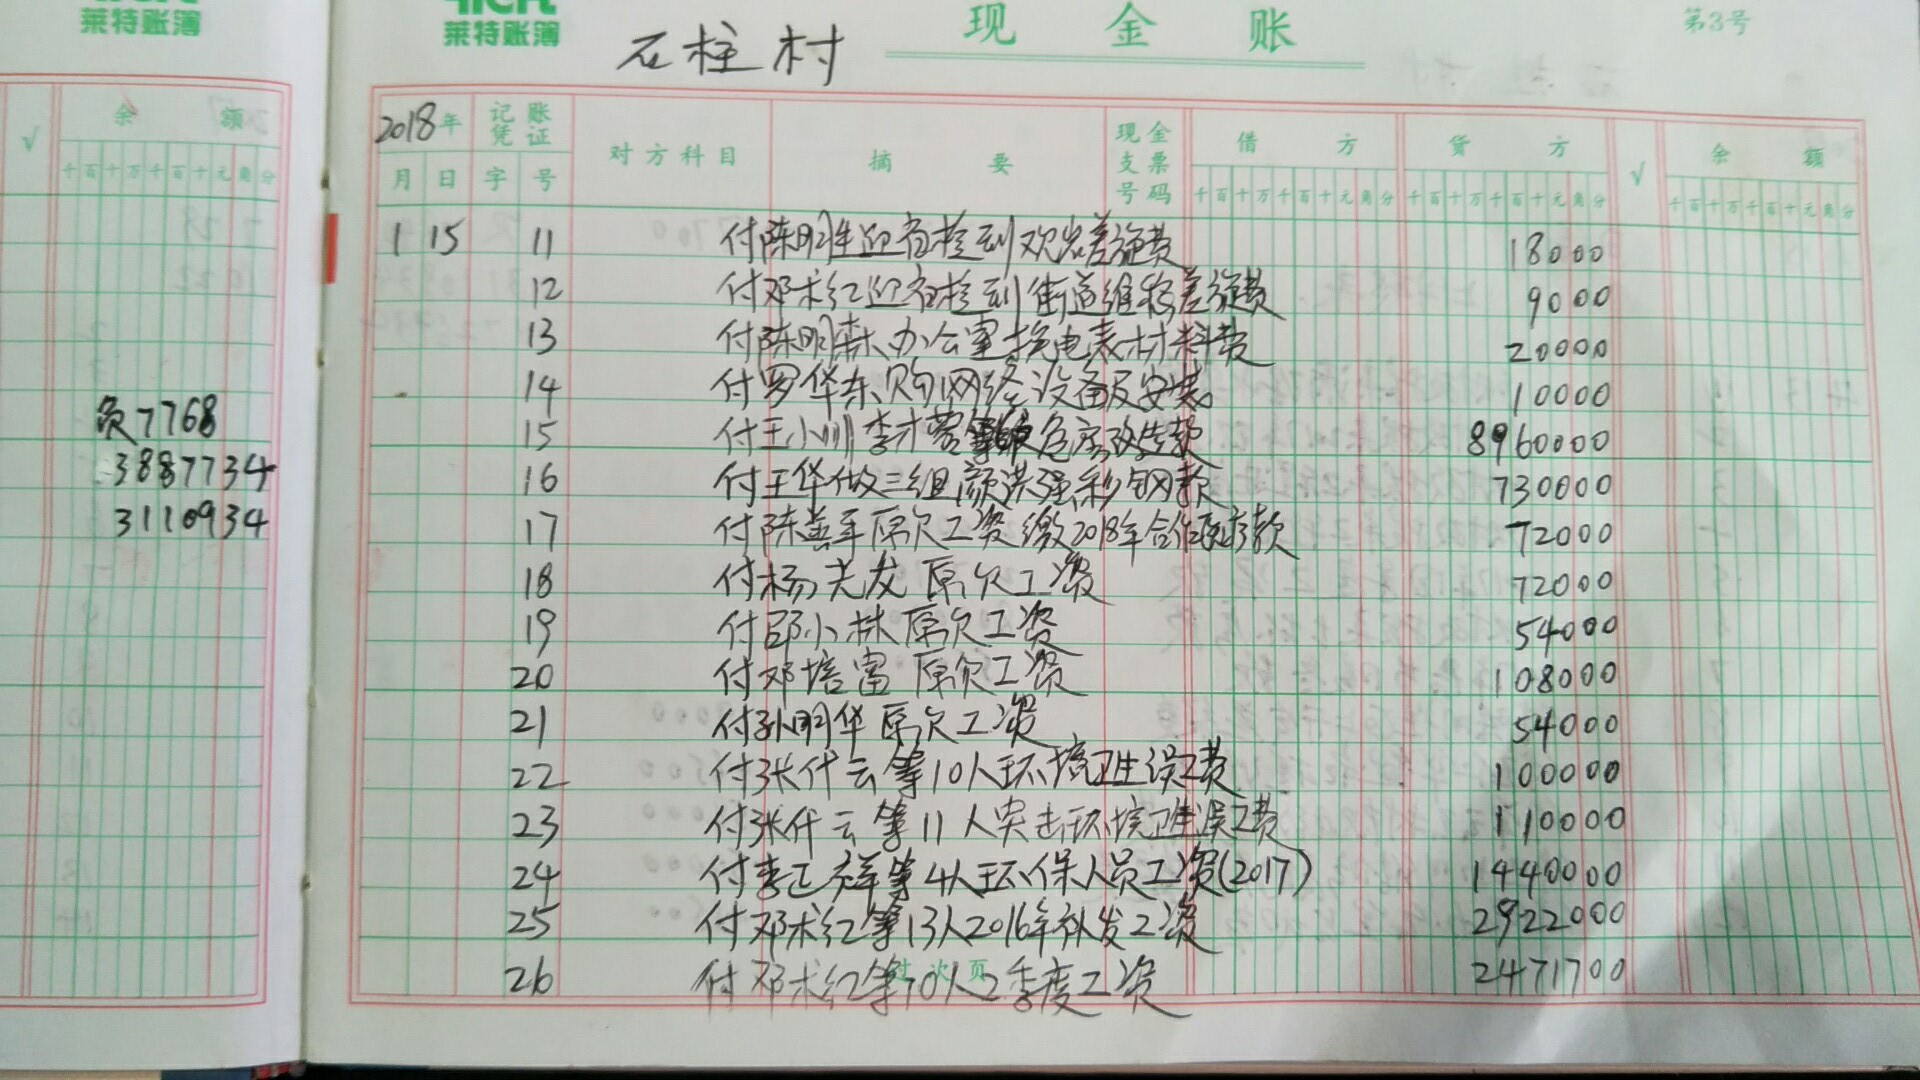 莱特账簿
莱特账簿
石柱村
现金账
第3号
余额
√
千百十万千百十元角分
负7768
3887734
3110934
2018年
记账凭证
对方科目
摘要
现金支票号码
借方
贷方
√
余额
月 日 字 号
千百十万千百十元角分
千百十万千百十元角分
千百十万千百十元角分
1 15 11 付陈明 迎省检到 差旅费 18000
12 付邓术红迎省检到街道维稳差旅费 9000
13 付陈明森办公室换电表材料费 20000
14 付罗华东购网络设备及安装 10000
15 付王小川李才蓉 危房改造款 8960000
16 付王华做三组颜洪强彩钢款 730000
17 付陈善军原欠工资缴2018年合作医疗款 72000
18 付杨光友原欠工资 72000
19 付邱小林原欠工资 54000
20 付邓培富原欠工资 108000
21 付孙明华原欠工资 54000
22 付张什云等10人环境卫生误工费 100000
23 付张什云等11人突击环境卫生误工费 110000
24 付李正祥等4人环保人员工资(2017) 1440000
25 付邓术红等13人2016年补发工资 2922000
26 付邓术红等10人2季度工资 2471700
过次页